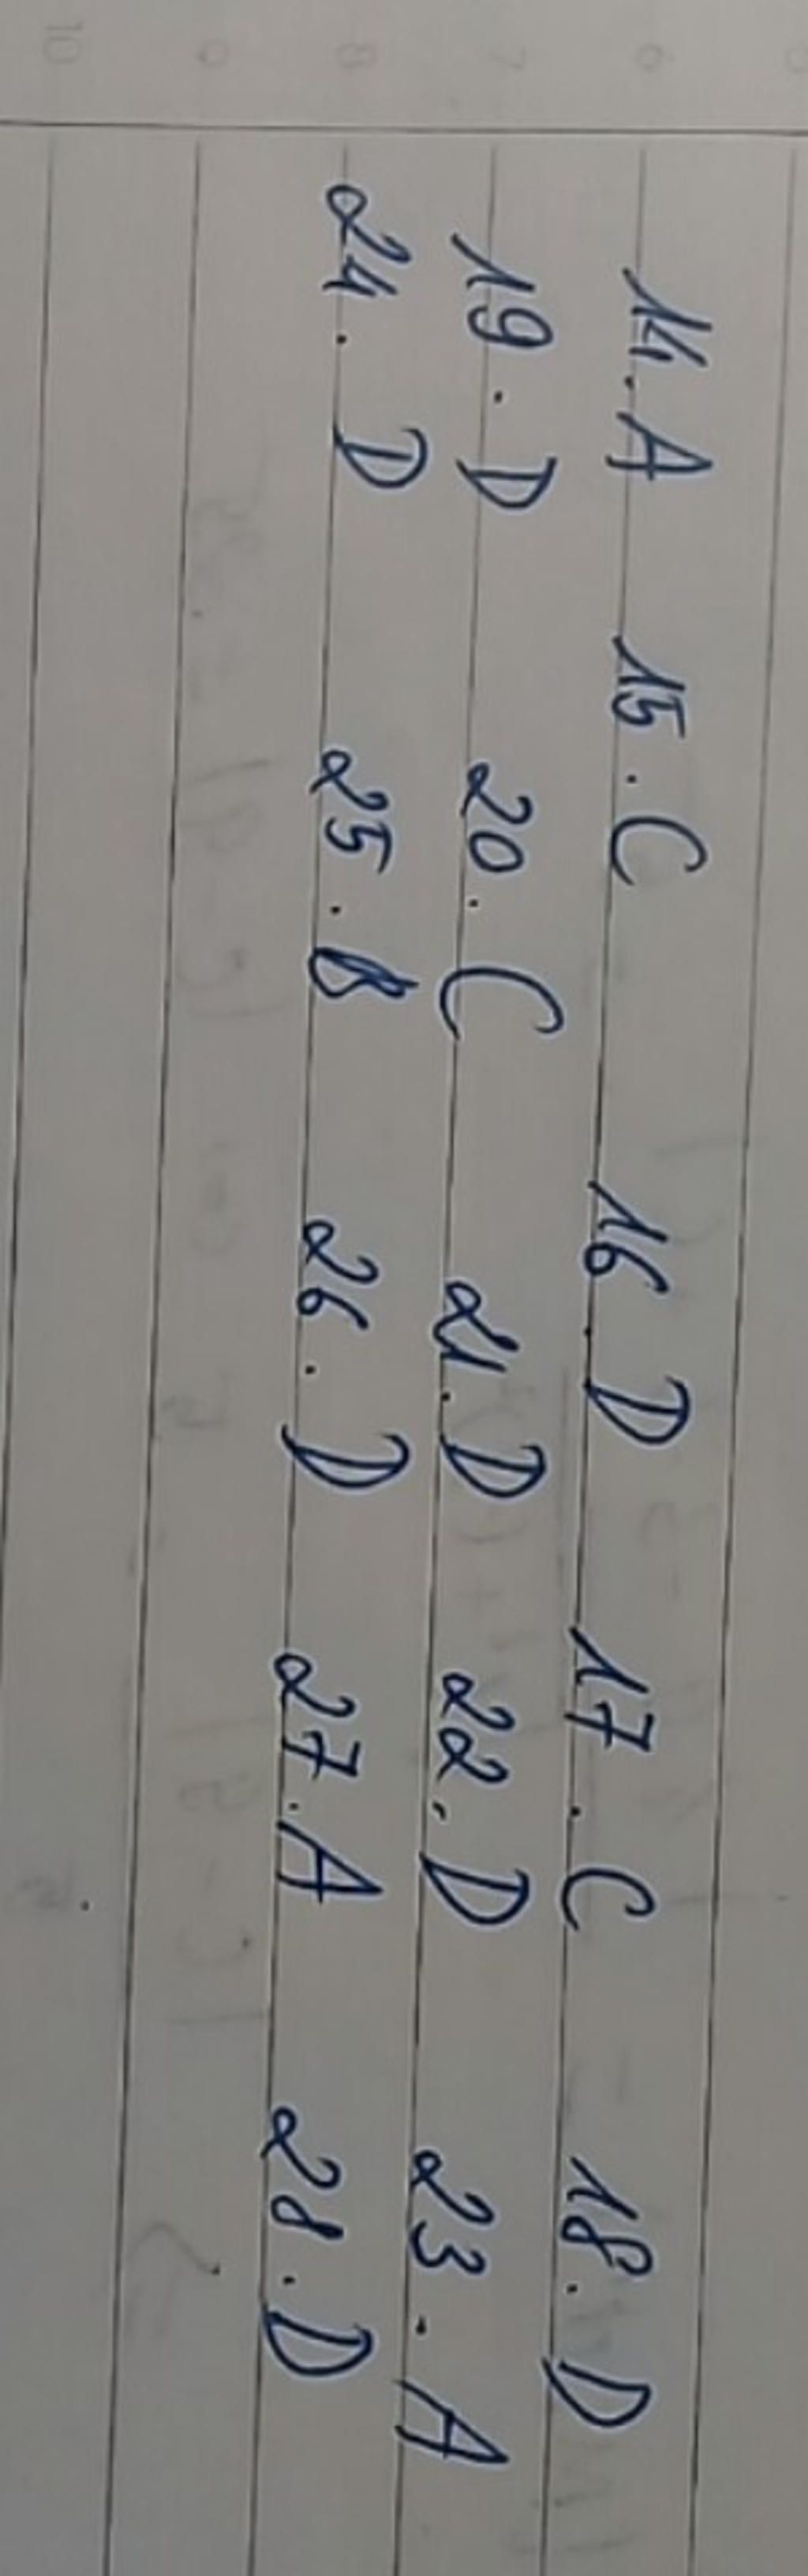 14. A 15. C 16. D 17. C 18. D
19. D 20. C 21. D 22. D 23. A
24. D 25. B 26. D 27. A 28. D